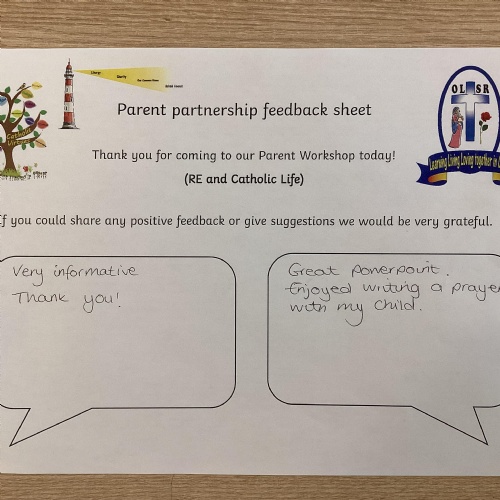 Liturgy
Charity
Our Common Home
School Council
OLSR
Parent partnership feedback sheet
Learning Living Loving together in
Thank you for coming to our Parent Workshop today!
(RE and Catholic Life)
If you could share any positive feedback or give suggestions we would be very grateful.
Very informative
Thank you!
Great powerpoint.
Enjoyed writing a prayer
with my child.